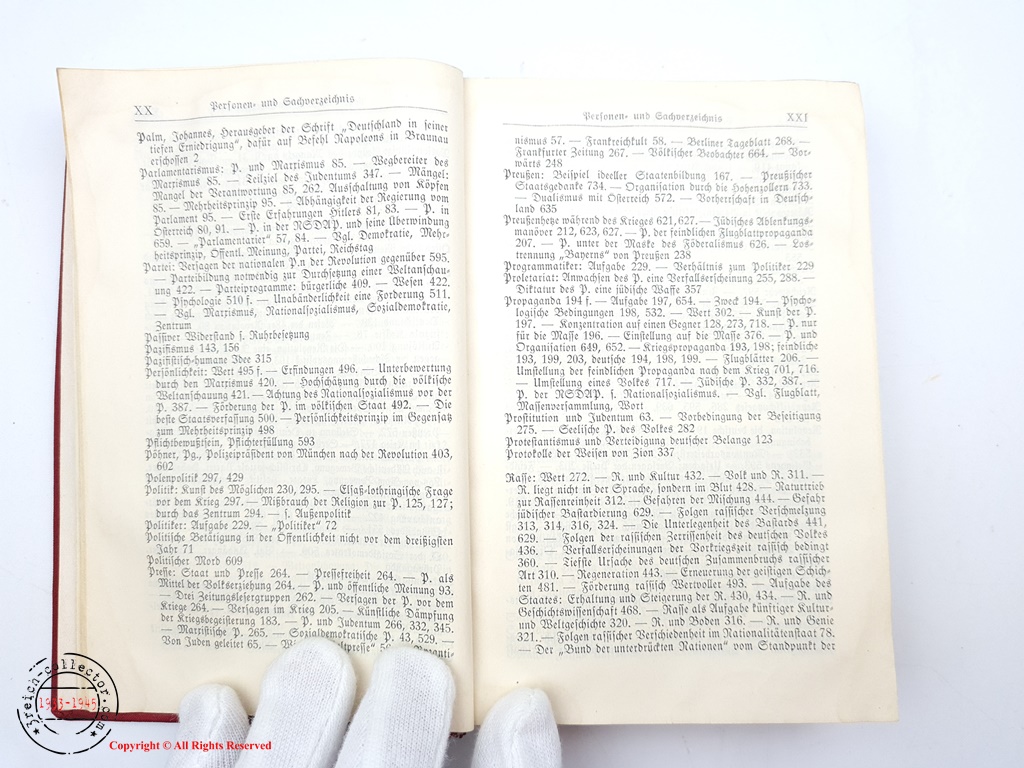 XX Personen- und Sachverzeichnis
Palm, Johannes, Herausgeber der Schrift „Deutschland in seiner
tiefen Erniedrigung“, dafür auf Befehl Napoleons in Braunau
erschossen 2
Parlamentarismus: P. und Marxismus 85. — Wegbereiter des
Marxismus 85. — Teilziel des Judentums 347. — Mängel:
Mangel der Verantwortung 85, 262. Ausschaltung von Köpfen
85. — Mehrheitsprinzip 95. — Abhängigkeit der Regierung vom
Parlament 95. — Erste Erfahrungen Hitlers 81, 83. — P. in
Österreich 80, 91. — P. in der NSDAP. und seine Überwindung
659. — „Parlamentarier“ 57, 84. — Vgl. Demokratie, Mehr-
heitsprinzip, Öffentl. Meinung, Partei, Reichstag
Partei: Versagen der nationalen P.n der Revolution gegenüber 595.
— Parteibildung notwendig zur Durchsetzung einer Weltanschau-
ung 422. — Parteiprogramme: bürgerliche 409. — Wesen 422.
— Psychologie 510 f. — Unabänderlichkeit eine Forderung 511.
— Vgl. Marxismus, Nationalsozialismus, Sozialdemokratie,
Zentrum
Passiver Widerstand s. Ruhrbesetzung
Pazifismus 143, 156
Pazifistisch-humane Idee 315
Persönlichkeit: Wert 495 f. — Erfindungen 496. — Unterbewertung
durch den Marxismus 420. — Hochschätzung durch die völkische
Weltanschauung 421. — Achtung des Nationalsozialismus vor der
P. 387. — Förderung der P. im völkischen Staat 492. — Die
beste Staatsverfassung 500. — Persönlichkeitsprinzip im Gegensatz
zum Mehrheitsprinzip 498
Pflichtbewußtsein, Pflichterfüllung 593
Pöhner, Pg., Polizeipräsident von München nach der Revolution 403,
602
Polenpolitik 297, 429
Politik: Kunst des Möglichen 230, 295. — Elsaß-lothringische Frage
vor dem Krieg 297. — Mißbrauch der Religion zur P. 125, 127;
durch das Zentrum 294. — s. Außenpolitik
Politiker: Aufgabe 229. — „Politiker“ 72
Politische Betätigung in der Öffentlichkeit nicht vor dem dreißigsten
Jahr 71
Politischer Mord 609
Presse: Staat und Presse 264. — Pressefreiheit 264. — P. als
Mittel der Volkserziehung 264. — P. und öffentliche Meinung 93.
— Drei Zeitungslesergruppen 262. — Versagen der P. vor dem
Kriege 264. — Versagen im Krieg 205. — Künstliche Dämpfung
der Kriegsbegeisterung 183. — P. und Judentum 266, 332, 345.
— Marxistische P. 265. — Sozialdemokratische P. 43, 529. —
Von Juden geleitet 65. —
Personen- und Sachverzeichnis XXI
nismus 57. — Frankreichkult 58. — Berliner Tageblatt 268. —
Frankfurter Zeitung 267. — Völkischer Beobachter 664. — Vor-
wärts 248
Preußen: Beispiel ideeller Staatenbildung 167. — Preußischer
Staatsgedanke 734. — Organisation durch die Hohenzollern 733.
— Dualismus mit Österreich 572. — Vorherrschaft in Deutsch-
land 635
Preußenhetze während des Krieges 621, 627. — Jüdisches Ablenkungs-
manöver 212, 623, 627. — P. der feindlichen Flugblattpropaganda
207. — P. unter der Maske des Föderalismus 626. — Los-
trennung „Bayerns“ von Preußen 238
Programmatiker: Aufgabe 229. — Verhältnis zum Politiker 229
Proletariat: Anwachsen des P. eine Verfallserscheinung 255, 288. —
Diktatur des P. eine jüdische Waffe 357
Propaganda 194 f. — Aufgabe 197, 654. — Zweck 194. — Psycho-
logische Bedingungen 198, 532. — Wert 302. — Kunst der P.
197. — Konzentration auf einen Gegner 128, 273, 718. — P. nur
für die Masse 196. — Einstellung auf die Masse 376. — P. und
Organisation 649, 652. — Kriegspropaganda 193, 198; feindliche
193, 199, 203, deutsche 194, 198, 199. — Flugblätter 206. —
Umstellung der feindlichen Propaganda nach dem Krieg 701, 716.
— Umstellung eines Volkes 717. — Jüdische P. 332, 387. —
P. der NSDAP. s. Nationalsozialismus. — Vgl. Flugblatt,
Massenversammlung, Wort
Prostitution und Judentum 63. — Vorbedingung der Beseitigung
275. — Seelische P. des Volkes 282
Protestantismus und Verteidigung deutscher Belange 123
Protokolle der Weisen von Zion 337
Rasse: Wert 272. — R. und Kultur 432. — Volk und R. 311. —
R. liegt nicht in der Sprache, sondern im Blut 428. — Naturtrieb
zur Rassenreinheit 312. — Gefahren der Mischung 444. — Gefahr
jüdischer Bastardierung 629. — Folgen rassischer Verschmelzung
313, 314, 316, 324. — Die Unterlegenheit des Bastards 441,
629. — Folgen der rassischen Zerrissenheit des deutschen Volkes
436. — Verfallserscheinungen der Vorkriegszeit rassisch bedingt
360. — Tiefste Ursache des deutschen Zusammenbruchs rassischer
Art 310. — Regeneration 443. — Erneuerung der geistigen Schich-
ten 481. — Förderung rassisch Wertvoller 493. — Aufgabe des
Staates: Erhaltung und Steigerung der R. 430, 434. — R. und
Geschichtswissenschaft 468. — Rasse als Aufgabe künftiger Kultur-
und Weltgeschichte 320. — R. und Boden 316. — R. und Genie
321. — Folgen rassischer Verschiedenheit im Nationalitätenstaat 78.
— Der „Bund der unterdrückten Nationen“ vom Standpunkt der
3reich-collector.com
1933-1945
Copyright © All Rights Reserved